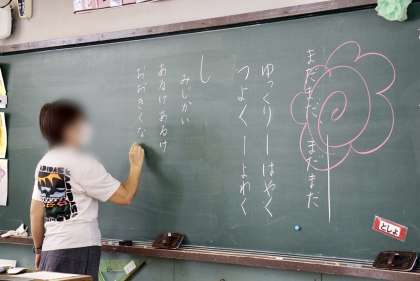 まだまだ まだまだ
ゆっくりーはやく
つよくーよわく
し
みじかい
あるけあるけ
おおきくな
としょ